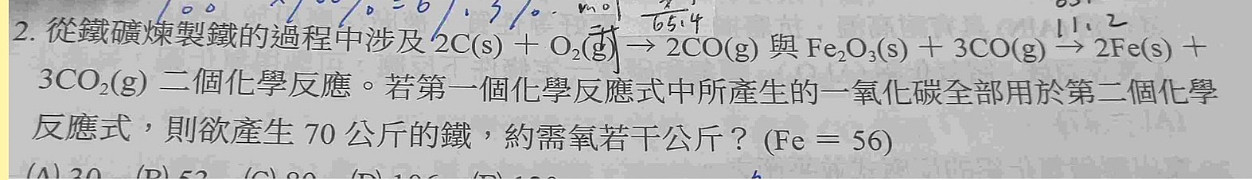 100 × 100% = 61.3%. mol 65.4 11.2
2. 從鐵礦煉製鐵的過程中涉及 2C(s) + O₂(g) → 2CO(g) 與 Fe₂O₃(s) + 3CO(g) → 2Fe(s) +
3CO₂(g) 二個化學反應。若第一個化學反應式中所產生的一氧化碳全部用於第二個化學
反應式，則欲產生 70 公斤的鐵，約需氧若干公斤？ (Fe = 56)
(A) 30